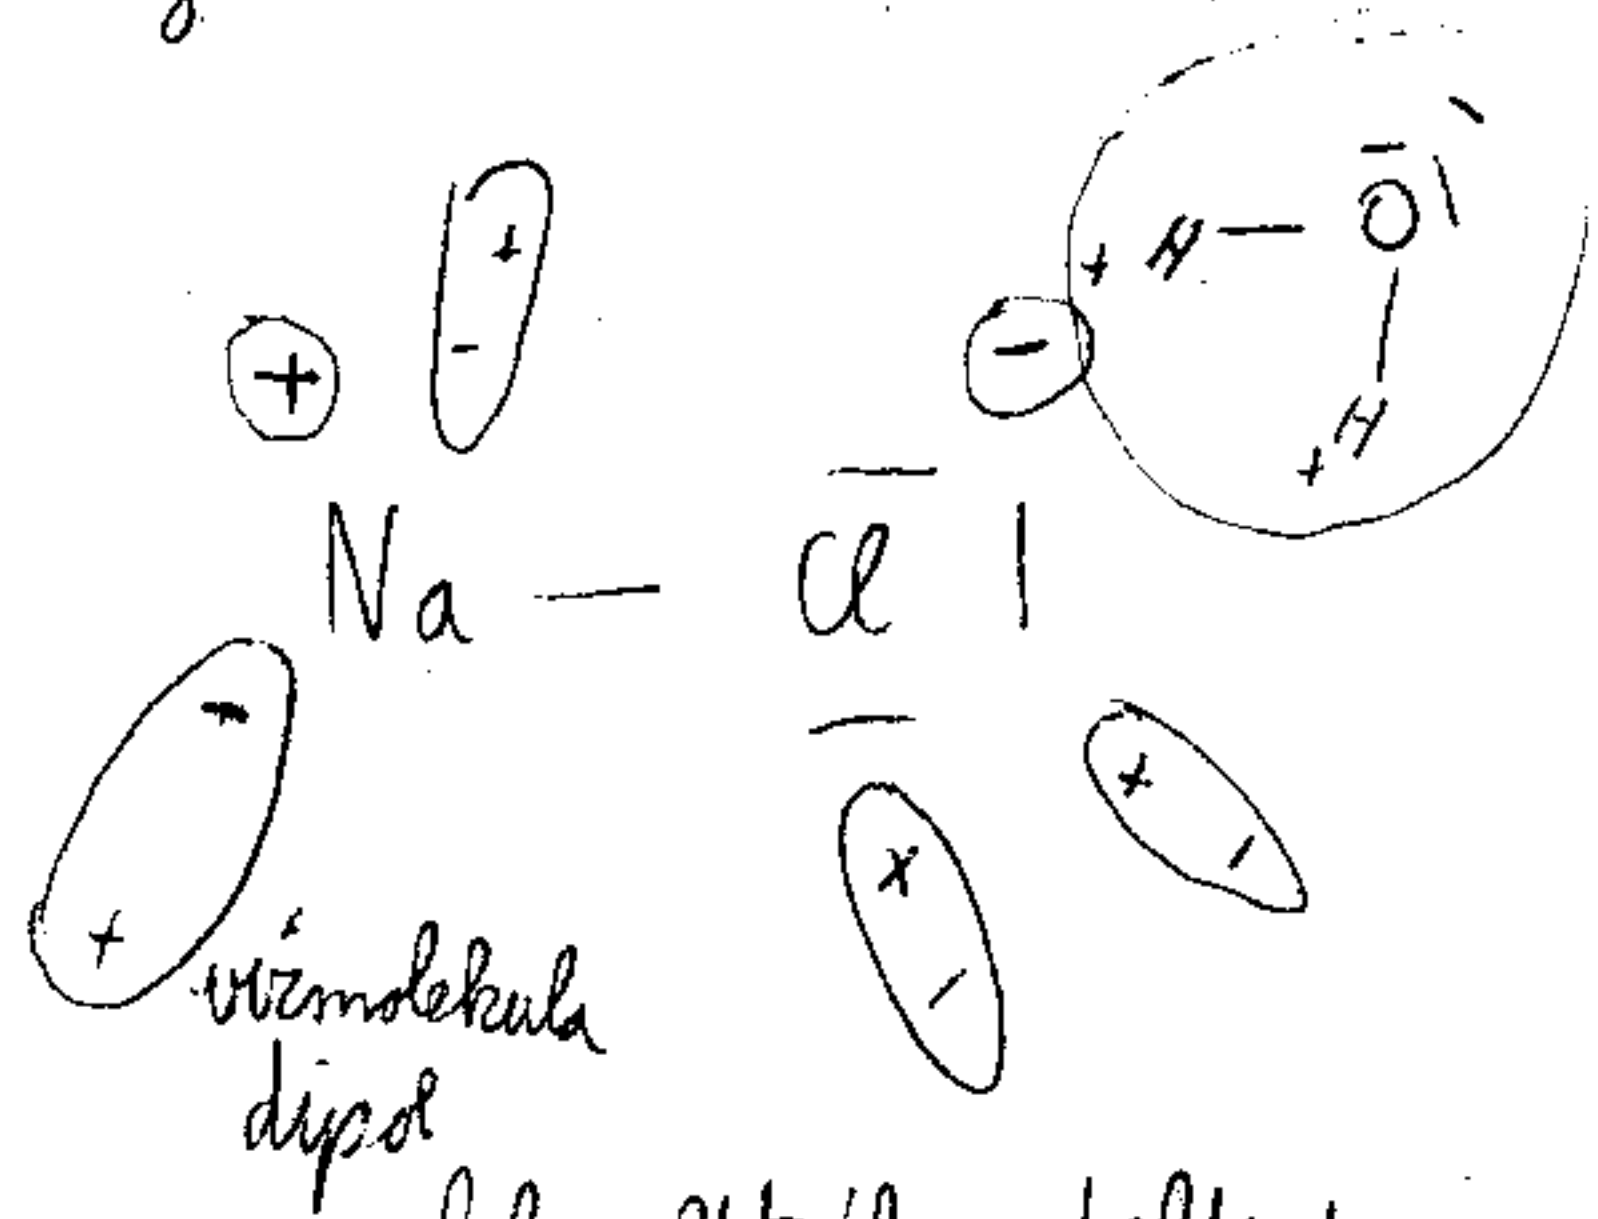 + H — O
+ -
+ -
H
+
Na — Cl
- + +
- -
+ vízmolekula
dipol